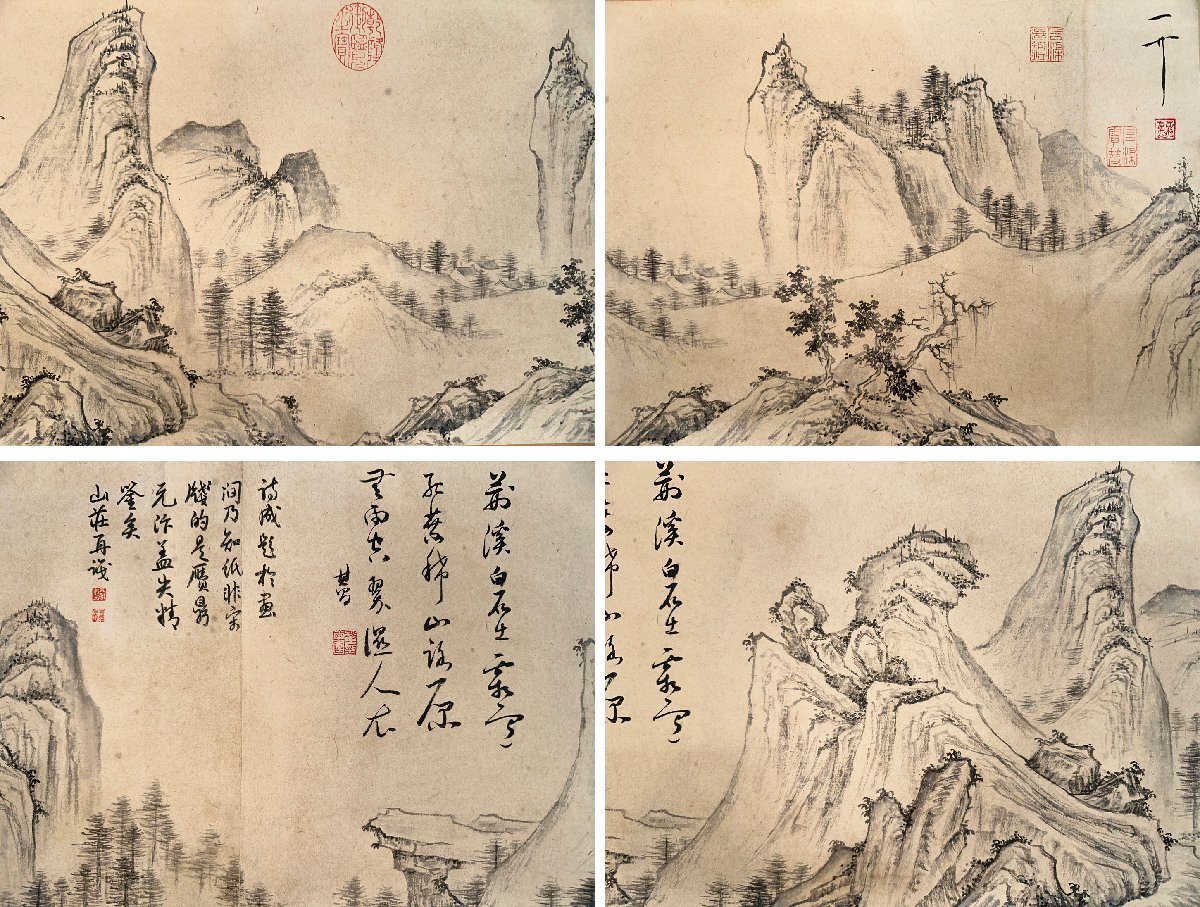 乾隆御覽之寶
荊溪白石出天寒
紅葉稀山路原
無雨空翠濕人衣
其昌
詩成題於畫
間乃知紙非宋
牋的是贗鼎
元汴蓋失精
鑒矣
山莊再識
荊溪白石出天寒